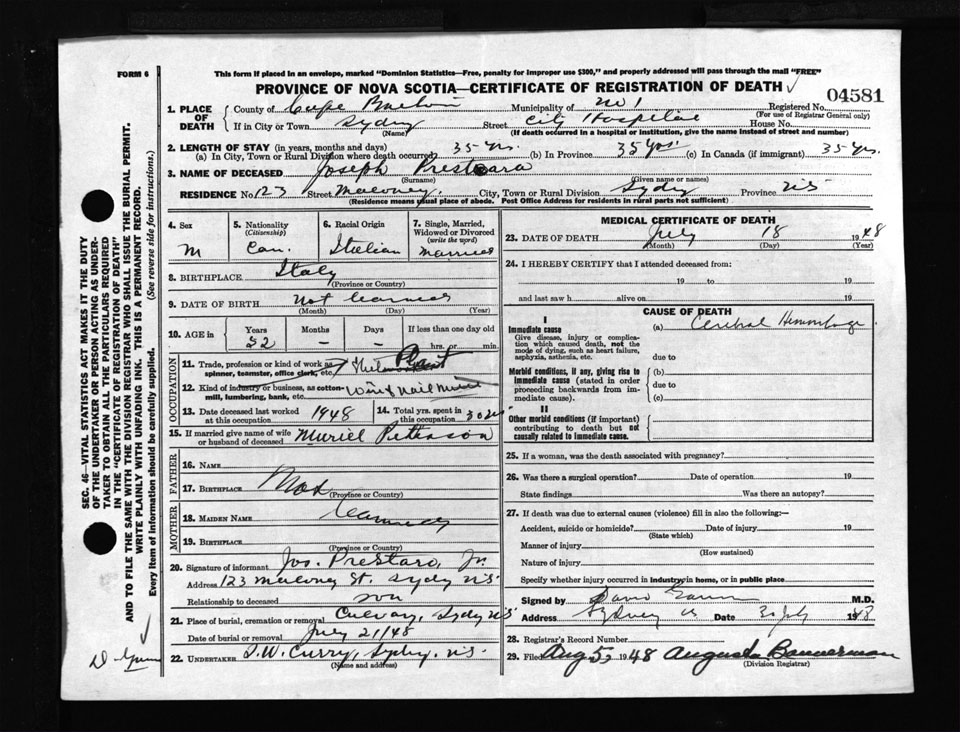 FORM 6
This form if placed in an envelope, marked "Dominion Statistics—Free, penalty for improper use $300," and properly addressed will pass through the mail "FREE"
PROVINCE OF NOVA SCOTIA—CERTIFICATE OF REGISTRATION OF DEATH
04581
1. PLACE OF DEATH County of Cape Breton Municipality of No 1 Registered No.
(For use of Registrar General only)
If in City or Town Sydney Street City Hospital House No.
(Name) (If death occurred in a hospital or institution, give the name instead of street and number)
2. LENGTH OF STAY (in years, months and days)
(a) In City, Town or Rural Division where death occurred 35 yrs. (b) In Province 35 yrs. (c) In Canada (if immigrant) 35 yrs.
3. NAME OF DECEASED Joseph Prestara
(Surname) (Given name or names)
RESIDENCE No 123 Street Maloney City, Town or Rural Division Sydney Province NS
(Residence means usual place of abode. Post Office Address for residents in rural parts not sufficient)
4. Sex M
5. Nationality (Citizenship) Can.
6. Racial Origin Italian
7. Single, Married, Widowed or Divorced (write the word) Married
8. BIRTHPLACE Italy
(Province or Country)
9. DATE OF BIRTH not learned
(Month) (Day) (Year)
10. AGE in Years Months Days If less than one day old
52 – – hrs. or min.
OCCUPATION
11. Trade, profession or kind of work as spinner, teamster, office clerk, etc. Plant
12. Kind of industry or business, as cotton-mill, lumbering, bank, etc. Wire & Nail
13. Date deceased last worked at this occupation 1948
14. Total yrs. spent in this occupation 30 yrs
15. If married give name of wife or husband of deceased Muriel Petterson
FATHER
16. NAME
17. BIRTHPLACE Not
(Province or Country)
MOTHER
18. MAIDEN NAME learned
19. BIRTHPLACE
(Province or Country)
20. Signature of informant Jos. Prestaro, Jr.
Address 123 Maloney St. Sydney NS
Relationship to deceased son
21. Place of burial, cremation or removal Calvary, Sydney NS
Date of burial or removal July 21/48
22. UNDERTAKER T.W. Curry, Sydney, NS
(Name and address)
MEDICAL CERTIFICATE OF DEATH
23. DATE OF DEATH July 18 1948
(Month) (Day) (Year)
24. I HEREBY CERTIFY that I attended deceased from:
19 to 19
and last saw h alive on 19
CAUSE OF DEATH
I
Immediate cause (a) Cerebral Hemorrhage
Give disease, injury or complication which caused death, not the mode of dying, such as heart failure, asphyxia, asthenia, etc.
due to
Morbid conditions, if any, giving rise to immediate cause (stated in order proceeding backwards from immediate cause). (b)
due to
(c)
II
Other morbid conditions (if important) contributing to death but not causally related to immediate cause.
25. If a woman, was the death associated with pregnancy?
26. Was there a surgical operation? Date of operation 19
State findings Was there an autopsy?
27. If death was due to external causes (violence) fill in also the following:—
Accident, suicide or homicide? Date of injury 19
(State which)
Manner of injury
(How sustained)
Nature of injury
Specify whether injury occurred in industry, in home, or in public place
Signed by M.D.
Address Sydney NS Date July 1948
28. Registrar's Record Number
29. Filed Aug 5, 1948 Augusta Bannerman
(Division Registrar)
SEC. 46—VITAL STATISTICS ACT MAKES IT THE DUTY
OF THE UNDERTAKER OR PERSON ACTING AS UNDER-
TAKER TO OBTAIN ALL THE PARTICULARS REQUIRED
IN THE "CERTIFICATE OF REGISTRATION OF DEATH"
AND TO FILE THE SAME WITH THE DIVISION REGISTRAR WHO SHALL ISSUE THE BURIAL PERMIT.
WRITE PLAINLY WITH UNFADING INK. THIS IS A PERMANENT RECORD.
Every item of information should be carefully supplied. (See reverse side for instructions.)